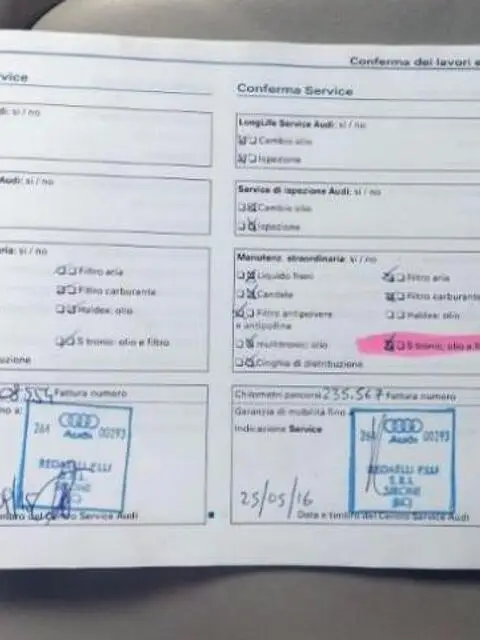 Conferma dei lavori e
rvice
Conferma Service
di: si / no
Audi: si / no
aria: si / no
Filtro aria
Filtro carburante
Haldex: olio
S tronic: olio e filtro
uzione
Fattura numero
no a:
264 Audi 00293
REDAELLI F.LLI
S.R.L.
SIRONE
Centro Service Audi
LongLife Service Audi: si / no
Cambio olio
Ispezione
Service di ispezione Audi: si / no
Cambio olio
Ispezione
Manutenz. straordinaria: si / no
Liquido freni
Filtro aria
Candele
Filtro carburante
Filtro antipolvere
e antipolline
Haldex: olio
multitronic: olio
S tronic: olio e fi
Cinghia di distribuzione
Chilometri percorsi 235.567 Fattura numero
Garanzia di mobilità fino a
Indicazione Service
264 Audi 00293
REDAELLI F.LLI
S.R.L.
SIRONE
(LC)
25/05/16
Data e timbro del Centro Service Audi